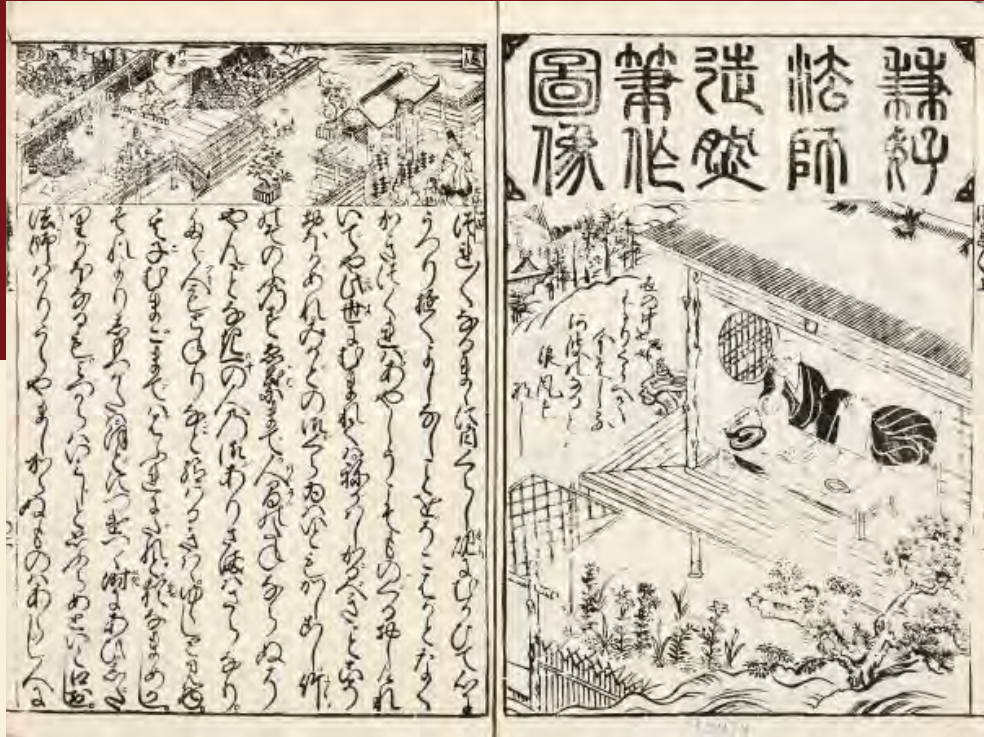 兼好
法師
徒然
筆作
圖像
世の中を
わたりくらべて
今ぞしる
阿波の
浪風も
なし
つれ〴〵なるまゝに日くらし硯にむかひて心に
うつり行くよしなしことをそこはかとなく
かきつくればあやしうこそものくるおしけれ
いでや此世にむまれては祢がはしかるべきことこそ
おほかめれみかどの御くらゐはいともかしこし竹
のそのふの末葉まで人間のたねならぬぞ
やんごとなき一の人の御ありさまはさらなり。
たゞ人もとねりなど給はるきはゝゆゝしと見ゆ。
其子むまごまではゝふれにたれど猶なまめかし
それより下つかたはほどにつけつゝ時にあひしたり
がほなるもみづからはいみじと思ふらめどいと口おし。
法師ばかりうらやましからぬものはあらじ人に